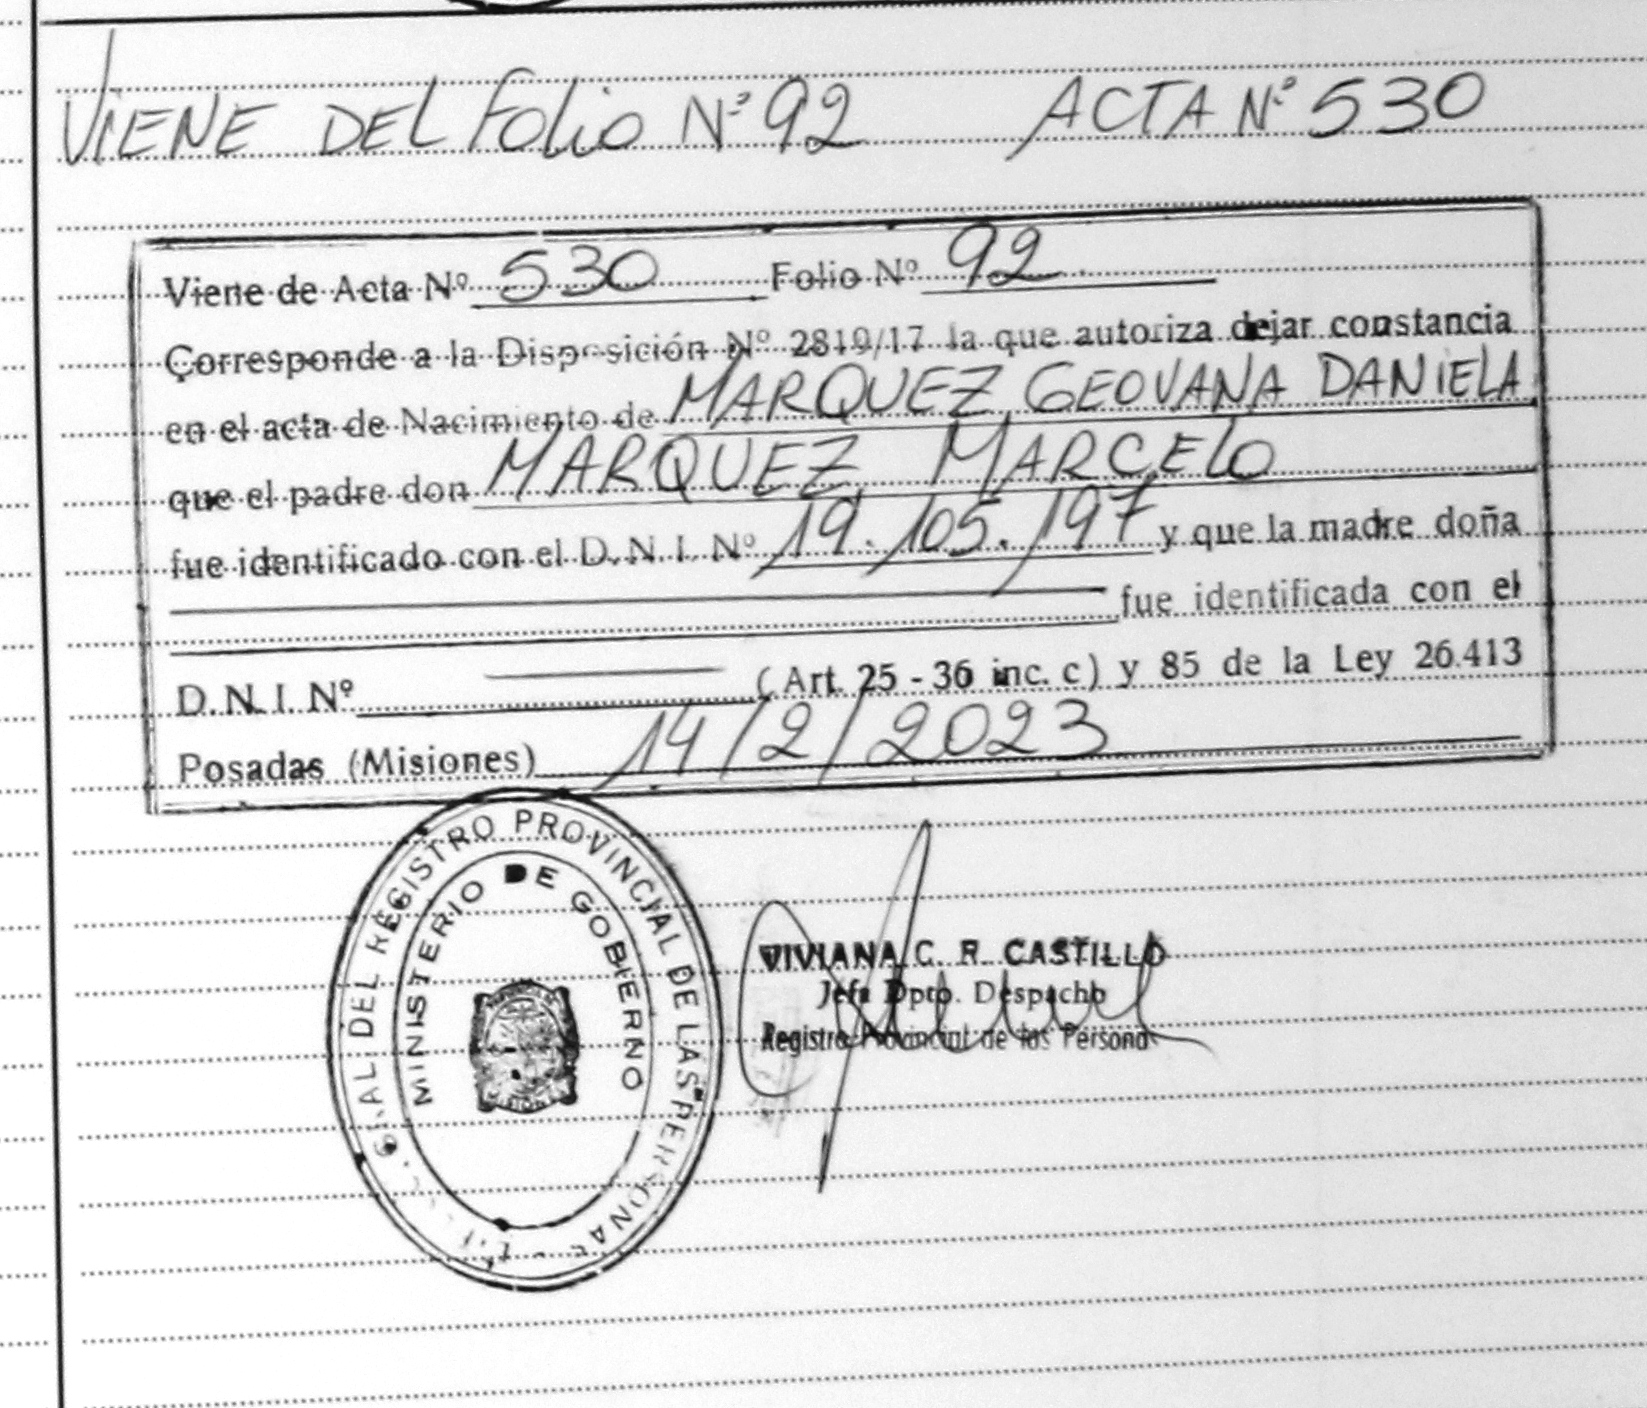 VIENE DEL FOLIO Nº 92 ACTA Nº 530
Viene de Acta Nº 530 Folio Nº 92
Corresponde a la Disposición Nº 2819/17 la que autoriza dejar constancia
en el acta de Nacimiento de MARQUEZ, GEOVANA DANIELA
que el padre don MARQUEZ, MARCELO
fue identificado con el D.N.I. Nº 19.105.197 y que la madre doña
fue identificada con el
D.N.I. Nº (Art. 25 - 36 inc. c) y 85 de la Ley 26.413
Posadas (Misiones) 14/2/2023
GRAL DEL REGISTRO PROVINCIAL DE LAS PERSONAS
MINISTERIO DE GOBIERNO
VIVIANA C. R. CASTILLO
Jefa Dpto. Despacho
Registro Provincial de las Persona